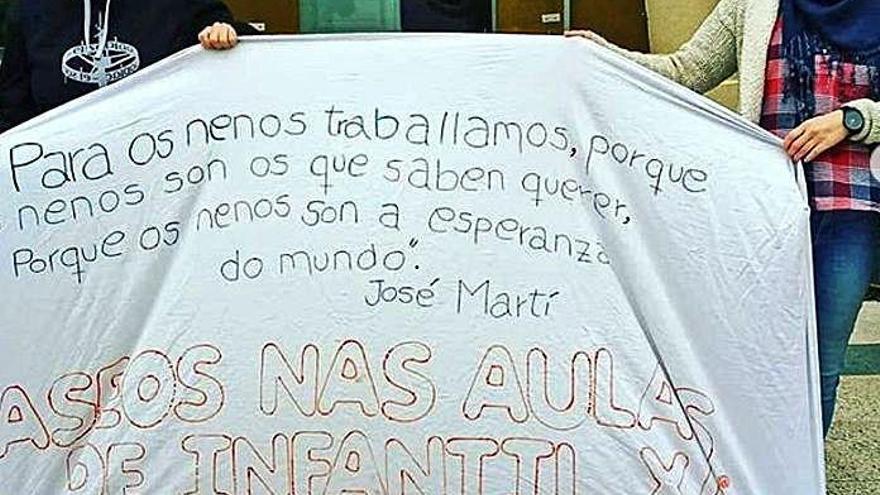 Para os nenos traballamos, porque
nenos son os que saben querer,
Porque os nenos son a esperanza
do mundo".
José Martí
ASEOS NAS AULAS
DE INFANTIL X